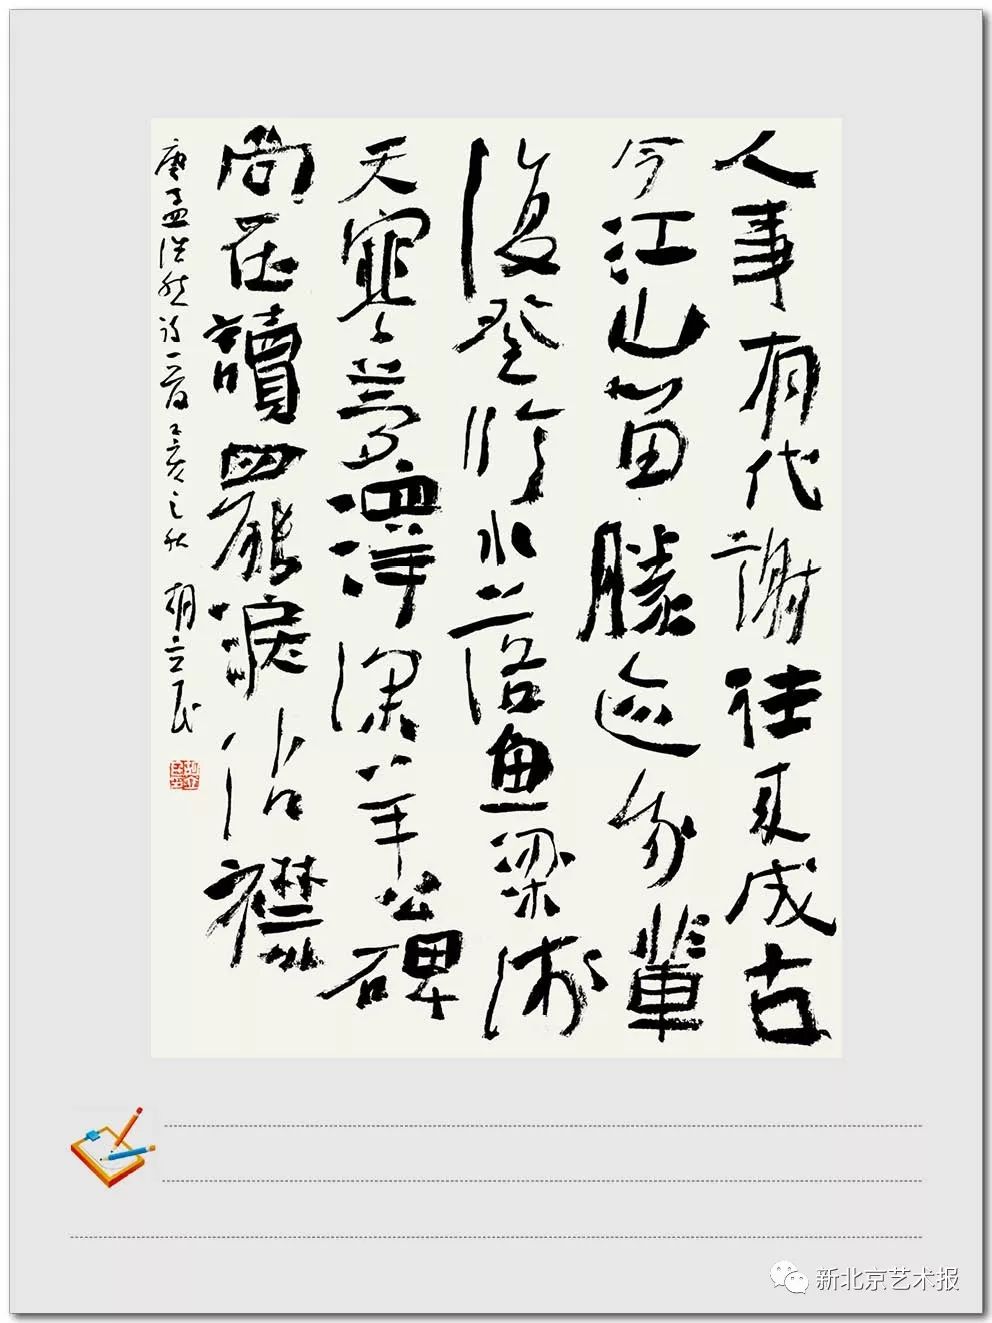 人事有代謝往来成古
今江山留勝迹我輩
復登临水落魚梁浅
天寒夢澤深羊公碑
尚在讀罷淚沾襟
唐孟浩然诗一首 己亥之秋 胡立民
新北京艺术报